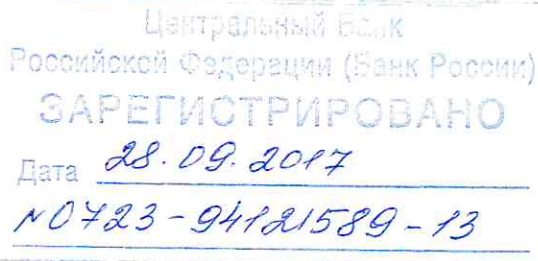 Центральный Банк
Российской Федерации (Банк России)
ЗАРЕГИСТРИРОВАНО
Дата 28.09.2017
№0723-94121589-13